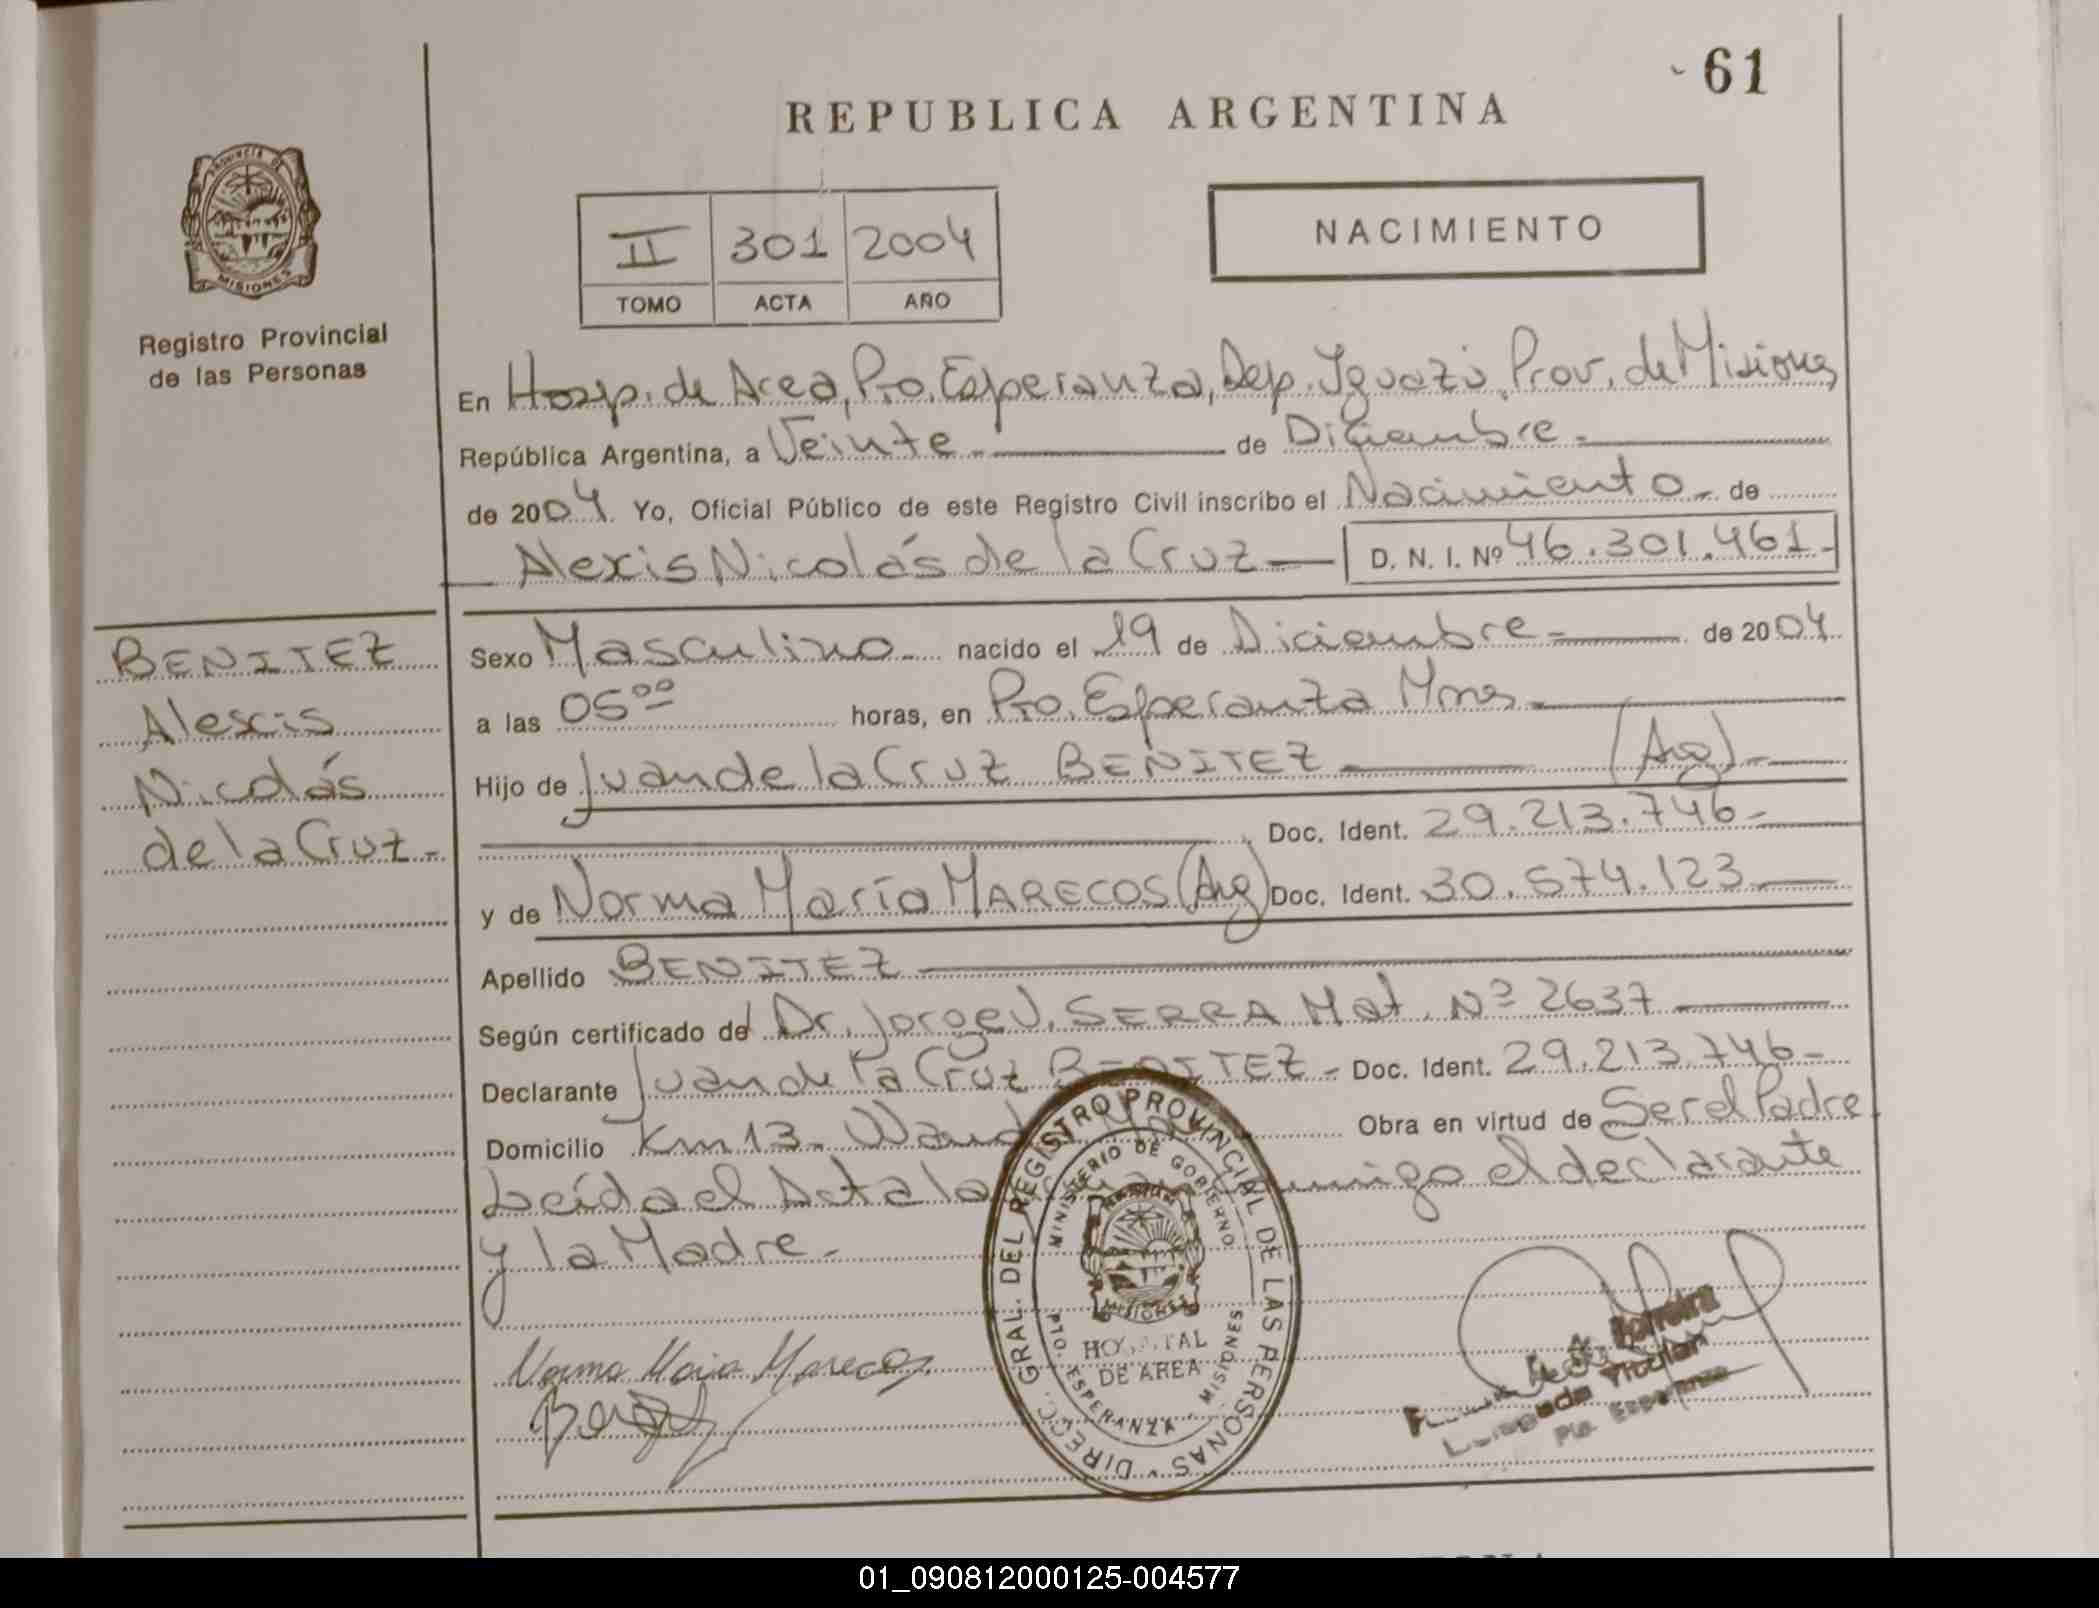 61
REPUBLICA ARGENTINA
PROVINCIA DE
MISIONES
Registro Provincial
de las Personas
II 301 2004
TOMO ACTA AÑO
NACIMIENTO
En Hosp. de Area, Pto. Esperanza, Dep. Iguazú, Prov. de Misiones,
República Argentina, a Veinte - de Diciembre -
de 2004. Yo, Oficial Público de este Registro Civil inscribo el Nacimiento - de
Alexis Nicolás de la Cruz — D. N. I. Nº 46.301.461-
BENITEZ
Alexis
Nicolás
de la Cruz -
Sexo Masculino - nacido el 19 de Diciembre - de 2004
a las 05⁰⁰ horas, en Pto. Esperanza Mnes -
Hijo de Juan de la Cruz BENITEZ — (Arg) -
Doc. Ident. 29.213.746 -
y de Norma María MARECOS (Arg) Doc. Ident. 30.574.123 —
Apellido BENITEZ —
Según certificado de Dr. Jorge J. SERRA Mat. Nº 2637 —
Declarante Juan de la Cruz BENITEZ - Doc. Ident. 29.213.746 -
Domicilio Km 13 - Obra en virtud de Ser el Padre
Leída el Acta la conmigo el declarante
y la Madre -
Norma Maria Marecos
DIRECC. GRAL. DEL REGISTRO PROVINCIAL DE LAS PERSONAS
MINISTERIO DE GOBIERNO
MISIONES
DE AREA
PTO. ESPERANZA - MISIONES
Titular
Pto. Esperanza
01_090812000125-004577